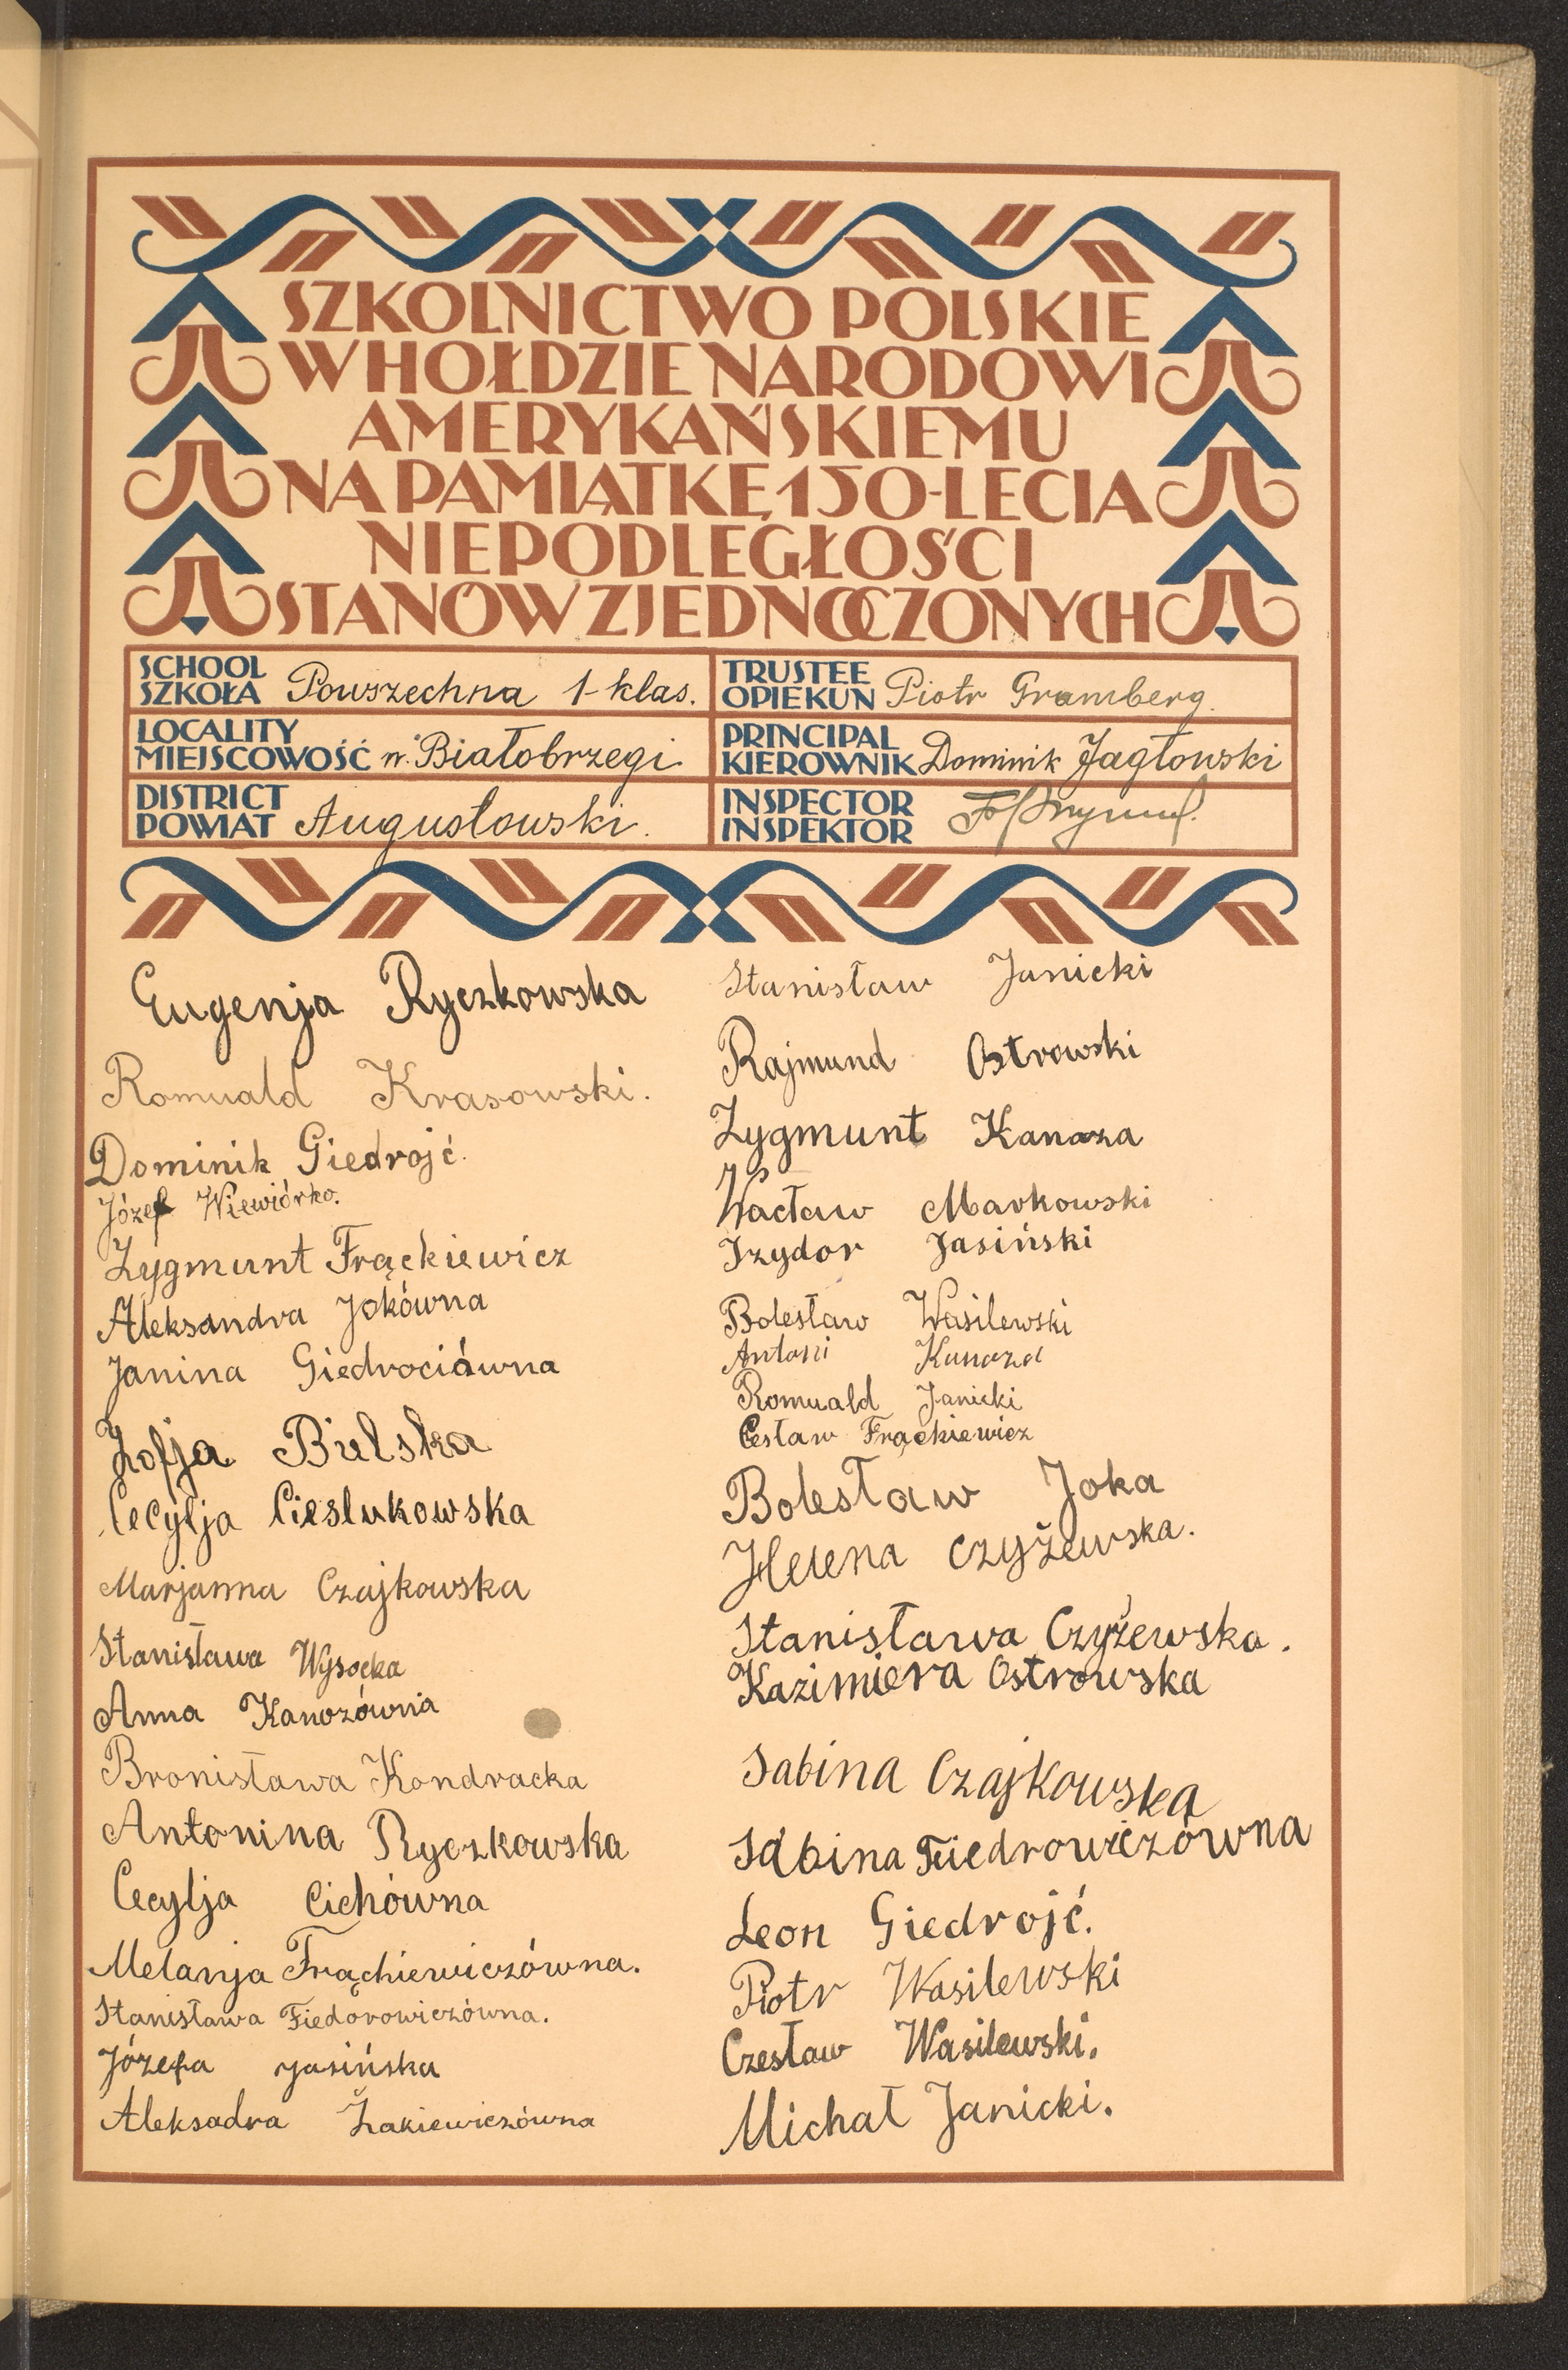 SZKOLNICTWO POLSKIE
W HOŁDZIE NARODOWI
AMERYKAŃSKIEMU
NA PAMIĄTKĘ 150-LECIA
NIEPODLEGŁOŚCI
STANÓW ZJEDNOCZONYCH
SCHOOL
SZKOŁA Powszechna 1-klas.
LOCALITY
MIEJSCOWOŚĆ w. Białobrzegi
DISTRICT
POWIAT Augustowski.
TRUSTEE
OPIEKUN Piotr Gramberg.
PRINCIPAL
KIEROWNIK Dominik Jagłowski
INSPECTOR
INSPEKTOR
Eugenja Ryczkowska
Romuald Krasowski.
Dominik Giedrojć.
Józef Wiewiórko.
Zygmunt Frąckiewicz
Aleksandra Jokówna
Janina Giedrociówna
Zofja Bielska
Cecylja Cieslukowska
Marjanna Czajkowska
Stanisława Wysocka
Anna Kanozówna
Bronisława Kondracka
Antonina Ryczkowska
Cecylja Cichówna
Melanja Frąckiewiczówna.
Stanisława Fiedorowiczówna.
Józefa Jasińska
Aleksadra Żakiewiczówna
Stanisław Janicki
Rajmund Ostrowski
Zygmunt Kanoza
Wacław Markowski
Izydor Jasiński
Bolesław Wasilewski
Antoni Kanoza
Romuald Janicki
Cesław Frąckiewicz
Bolesław Joka
Helena Czyżewska.
Stanisława Czyżewska.
Kazimiera Ostrowska
Sabina Czajkowska
Sabina Fiedrowiczówna
Leon Giedrojć.
Piotr Wasilewski
Czesław Wasilewski.
Michał Janicki.